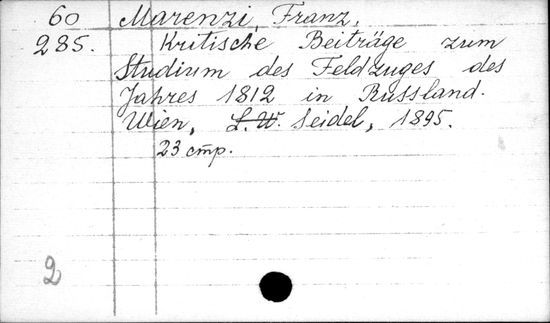 60 Marenzi, Franz,
285. Kritische Beiträge zum
Studium des Feldzuges des
Jahres 1812 in Russland.
Wien, L. W. Seidel, 1895.
23 cmp.
2